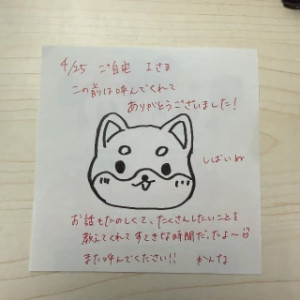 4/25 ご自宅 Iさま
この前は呼んでくれて
ありがとうございました!
しばいぬ
お話もたのしくて、たくさんしたいことを
教えてくれてすてきな時間だったよ〜
また呼んでください!! かんな